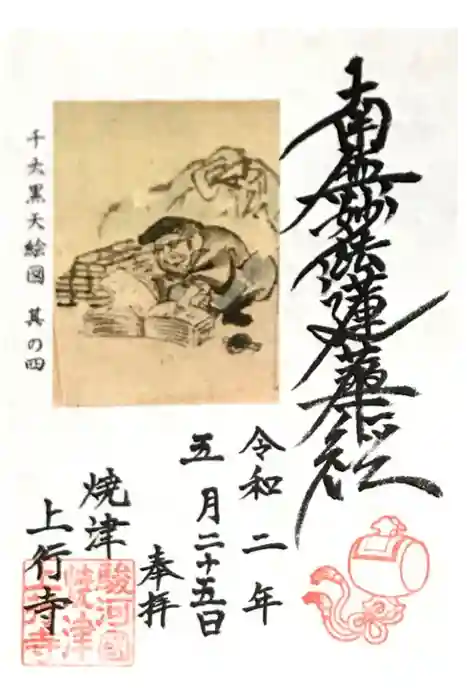 南無妙法蓮華経
千大黒天絵図 其の四
令和二年
五月二十五日
奉拝
焼津
上行寺
駿河國
焼津
上行寺